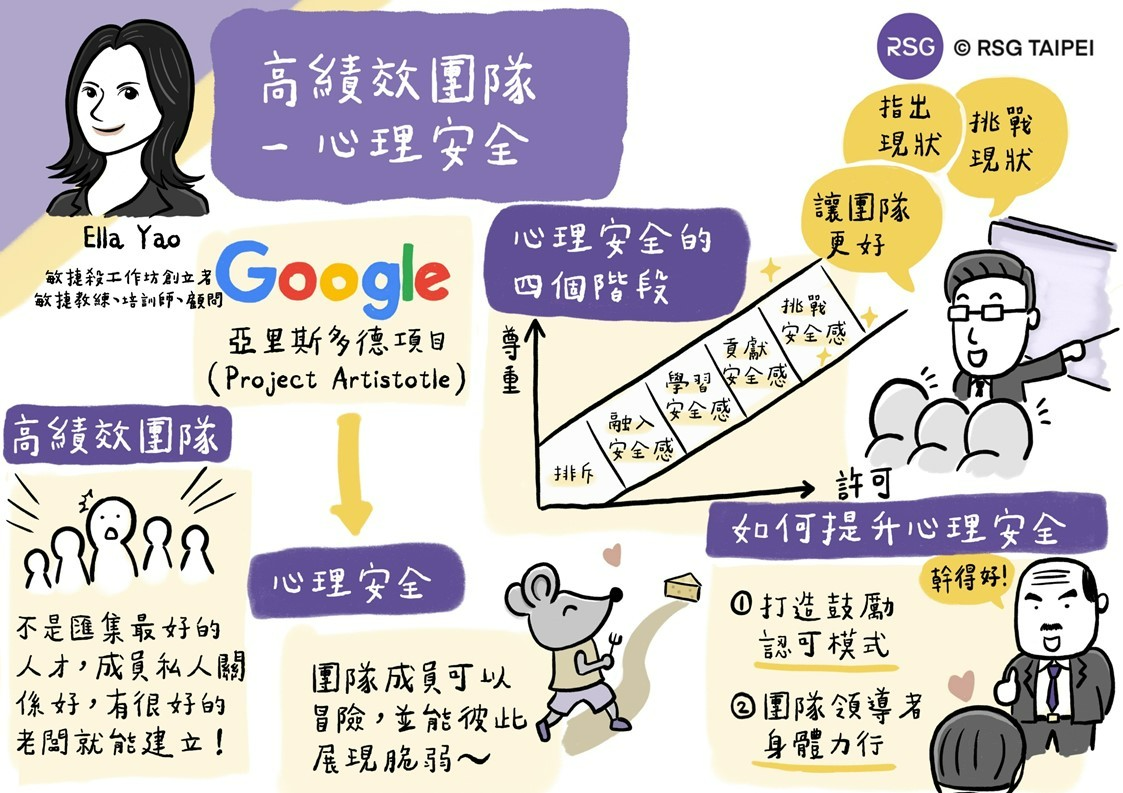 高績效團隊
－心理安全
RSG © RSG TAIPEI
Ella Yao
敏捷殺工作坊創立者
敏捷教練、培訓師、顧問
Google
亞里斯多德項目
(Project Artistotle)
高績效團隊
不是匯集最好的
人才，成員私人關
係好，有很好的
老闆就能建立！
心理安全
團隊成員可以
冒險，並能彼此
展現脆弱～
心理安全的
四個階段
尊重
許可
排斥
融入
安全感
學習
安全感
貢獻
安全感
挑戰
安全感
指出
現狀
挑戰
現狀
讓團隊
更好
如何提升心理安全
① 打造鼓勵
認可模式
② 團隊領導者
身體力行
幹得好!